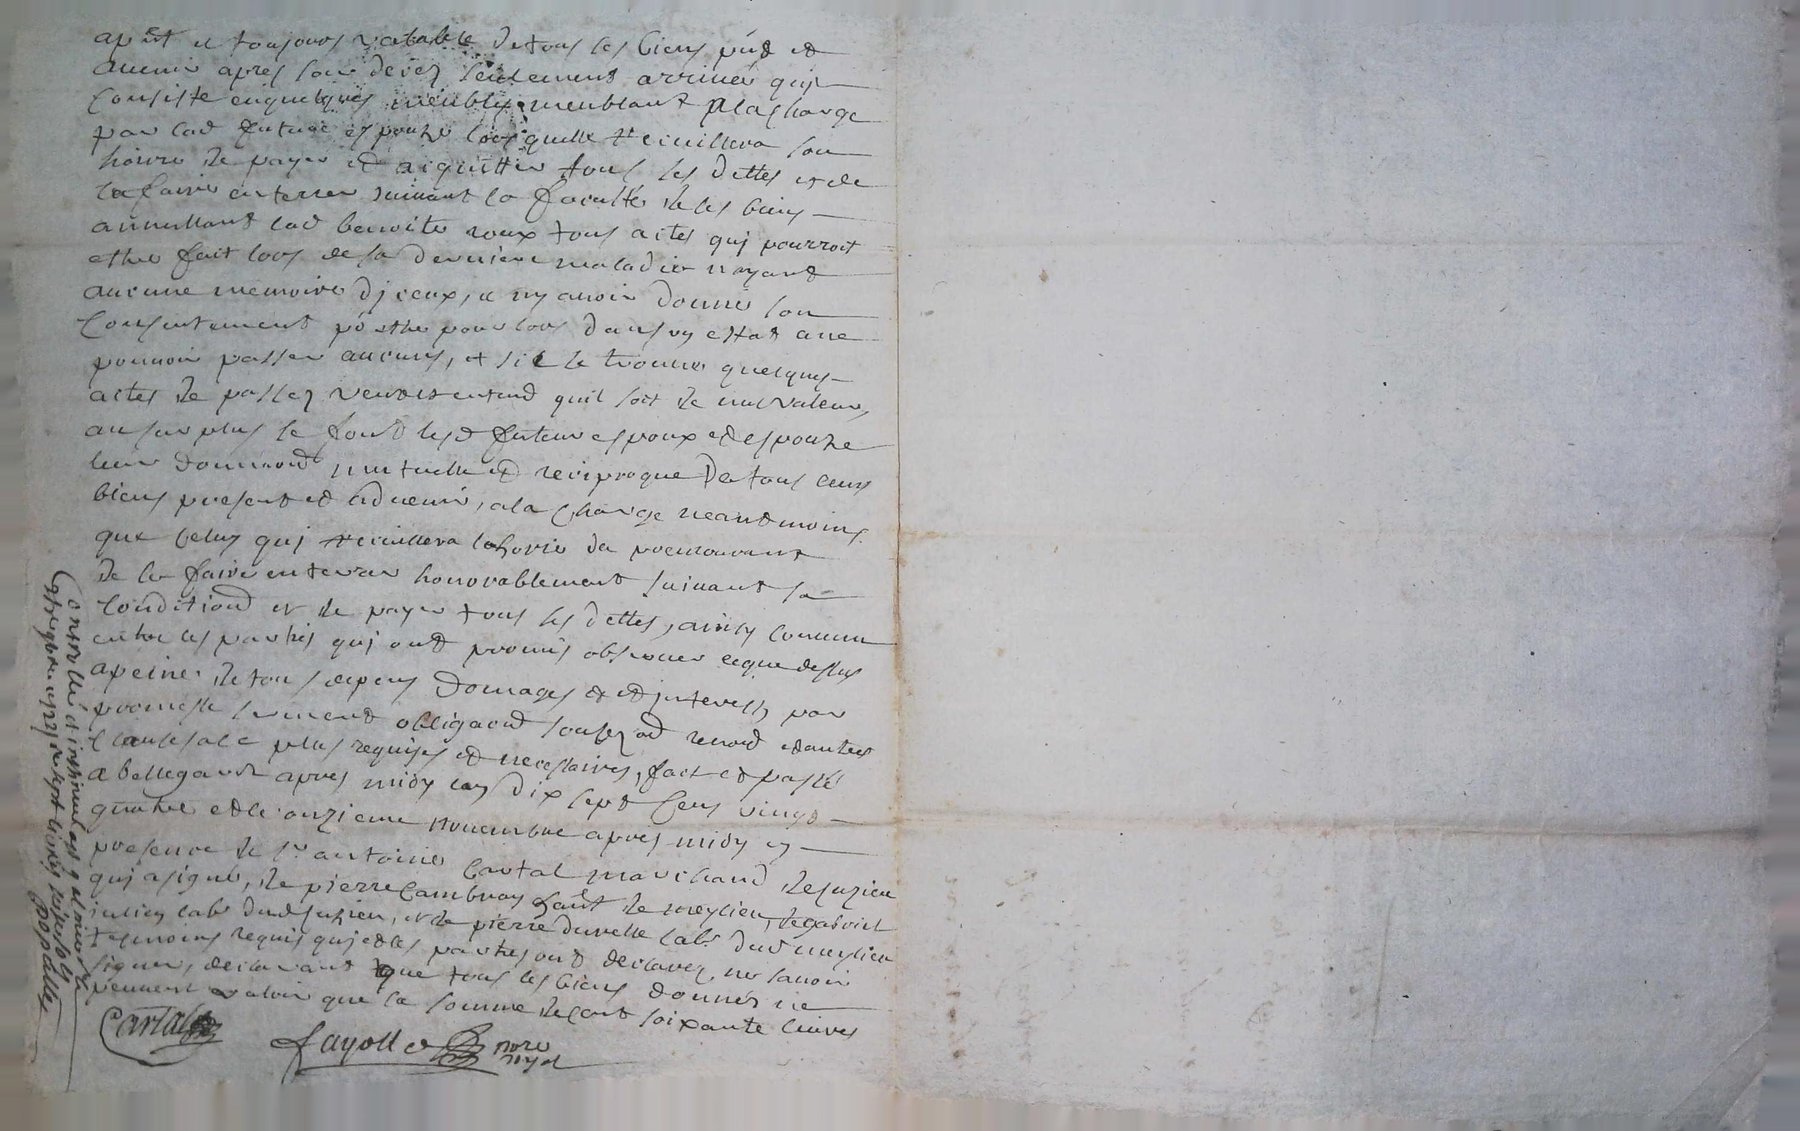 apnt et tousjours vatable de tous les biens pnts et
avenir apres son decez seulement arrivée qui
consiste en quelques meubles meublant a la charge
par lad future espouze lors quelle recuillera son
hoirie de payer et aiquitter tous les dettes et de
la faire enterrer suivant la faculté de ses biens
annullant lad benoite roux tous actes qui pourroit
estre fait lors de sa derniere maladie n'ayant
aucune memoire d'jceux, et ny avoir donné son
consentement pr estre pour lors dans un estat a ne
pouvoir passer aucuns, et sil se trouve quelques
actes de passez veut et entend quil soit de nul valeur,
au surplus se font lesd futeur espoux et espouze
leur donnaond mutuelle et reciproque de tous leurs
biens present et advenir, a la charge neantmoins
que celuy qui recuillera lhoirie du premourant
de le faire enterrer honnorablement suivant sa
conditiond et de payer tous les dettes, ainsy convenu
entre les parties qui ont promis observer ce que dessus
a peine de tous depens domages et interests, par
promesse serment obligaond sousmond renond et autres
clauses a ce plus requises et necessaires, fait et passé
a bellegarde apres midy lan dix sept cens vingt
quatre et le onzieme novembre apres midy en
presence de sr antoine Cartal marchand de juzieu
qui a signé, de pierre Cambray hant de meylieu, de gabriel
julien labr dud juzieu, et de pierre durelle labr dud meylieu
tesmoins requis qui et les parties ont declarez ne savoir
signer, declarant que tous les biens donnés ne
peuvent valoir que la somme de cent soixante livres
Cartal
fayolle nore
royal
Controllé et insinué